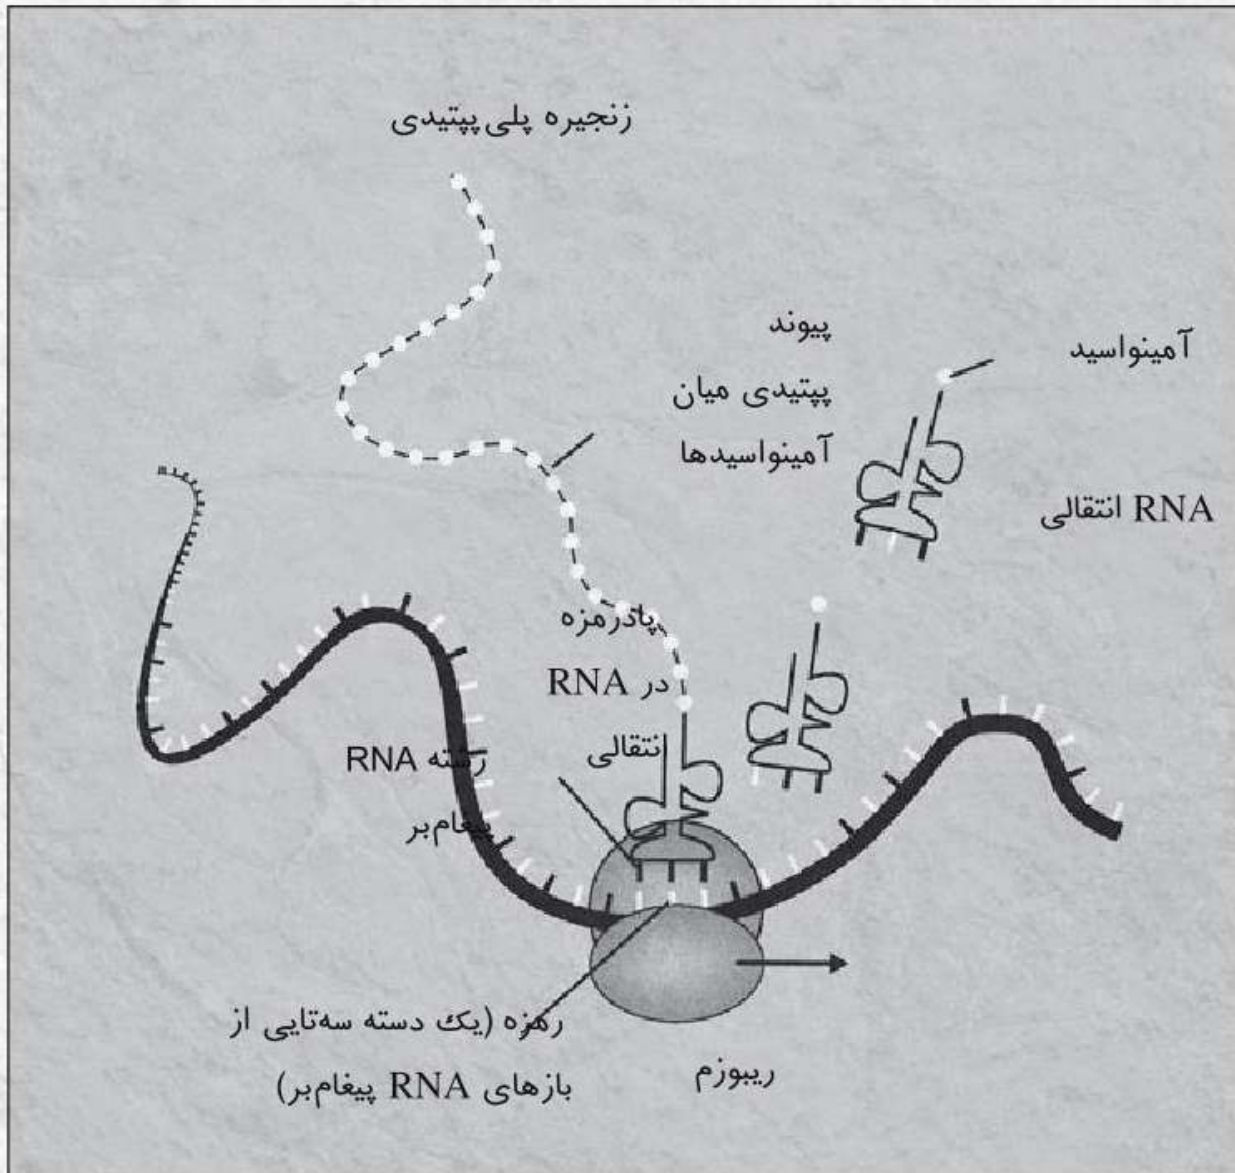 زنجیره پلی‌پپتیدی
پیوند
پپتیدی میان
آمینواسیدها
آمینواسید
RNA انتقالی
پادرمزه
در RNA
انتقالی
رشته RNA
پیغام‌بر
رمزه (یک دسته سه‌تایی از
بازهای RNA پیغام‌بر)
ریبوزم